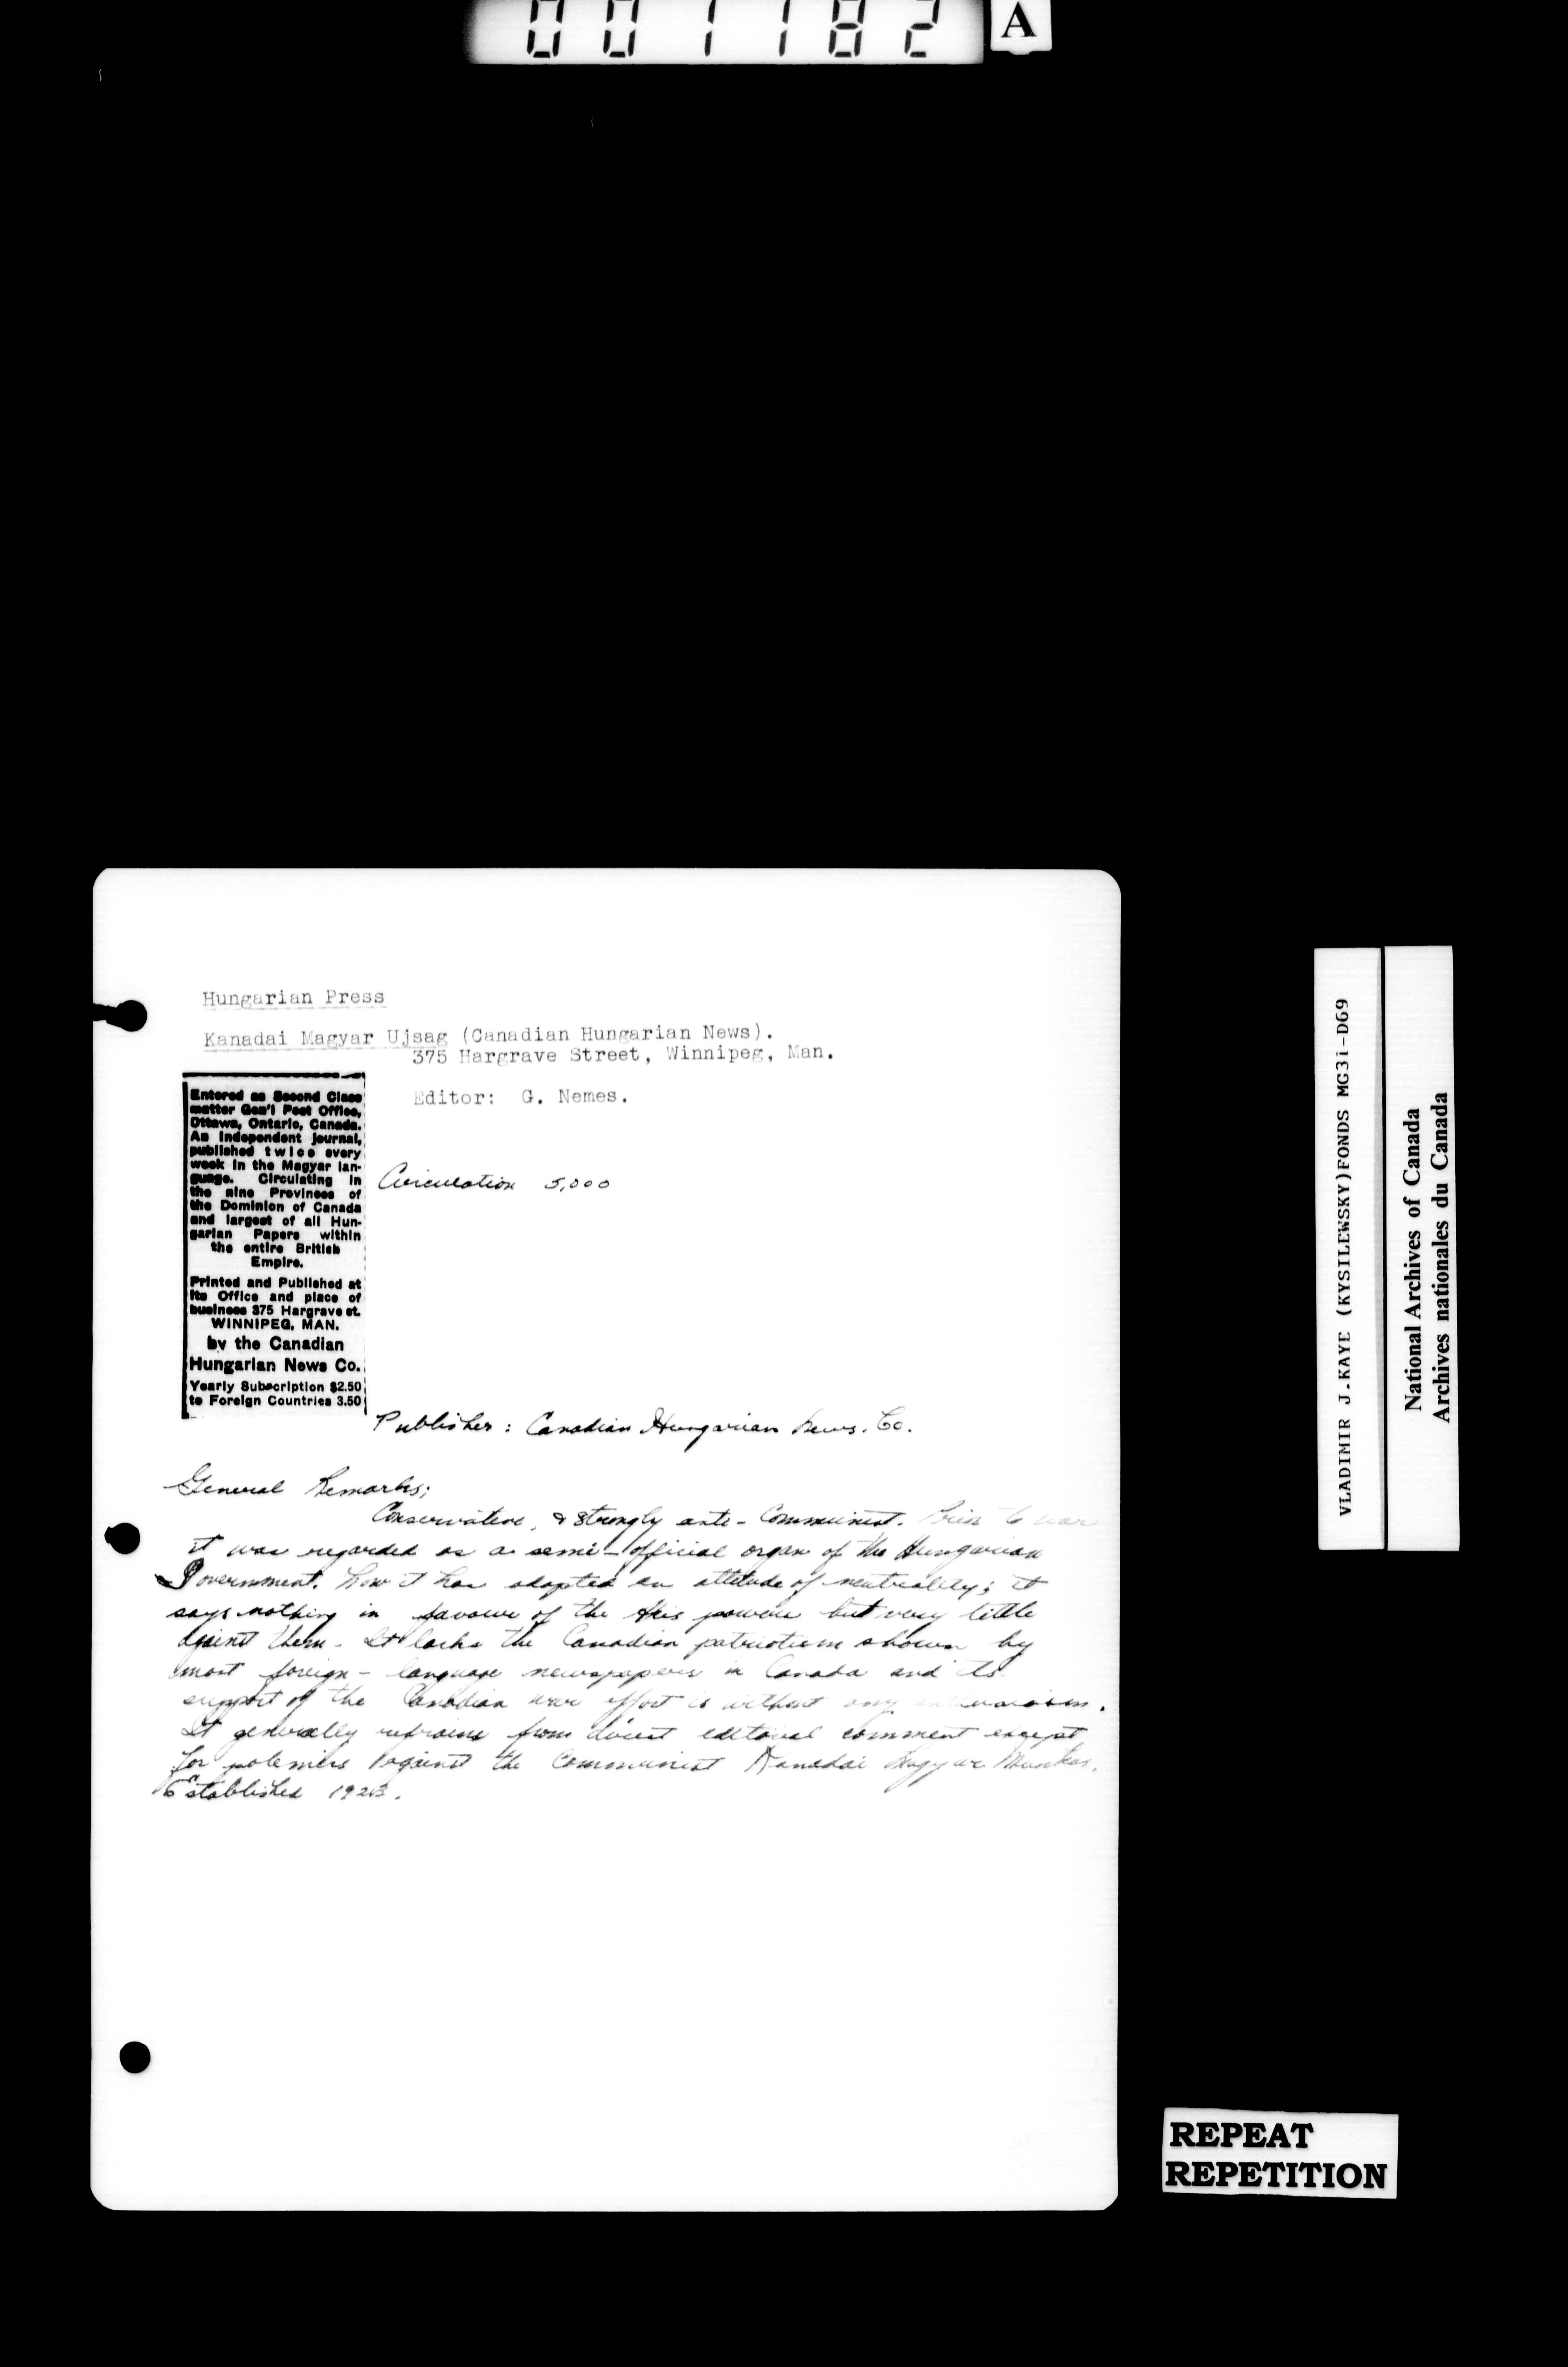 001182
A
Hungarian Press
Kanadai Magyar Ujsag (Canadian Hungarian News).
375 Hargrave Street, Winnipeg, Man.
Editor: G. Nemes.
Entered as Second Class
matter Gen'l Post Office,
Ottawa, Ontario, Canada.
An Independent journal,
published twice every
week in the Magyar lan-
guage. Circulating in
the nine Provinces of
the Dominion of Canada
and largest of all Hun-
garian Papers within
the entire British
Empire.
Printed and Published at
its Office and place of
business 375 Hargrave st.
WINNIPEG, MAN.
by the Canadian
Hungarian News Co.
Yearly Subscription $2.50
to Foreign Countries 3.50
Circulation 5,000
Publisher: Canadian Hungarian News. Co.
General Remarks;
Conservative, & strongly anti-Communist. Prior to war
it was regarded as a semi-official organ of the Hungarian
Government. Now it has adopted an attitude of neutrality; it
says nothing in favour of the Axis powers but very little
against them. It lacks the Canadian patriotism shown by
most foreign-language newspapers in Canada and its
support of the Canadian war effort is without any enthusiasm.
It generally refrains from direct editorial comment except
for polemics against the Communist Kanadai Magyar Munkas.
Established
VLADIMIR J.KAYE (KYSILEWSKY)FONDS MG31-D69
National Archives of Canada
Archives nationales du Canada
REPEAT
REPETITION